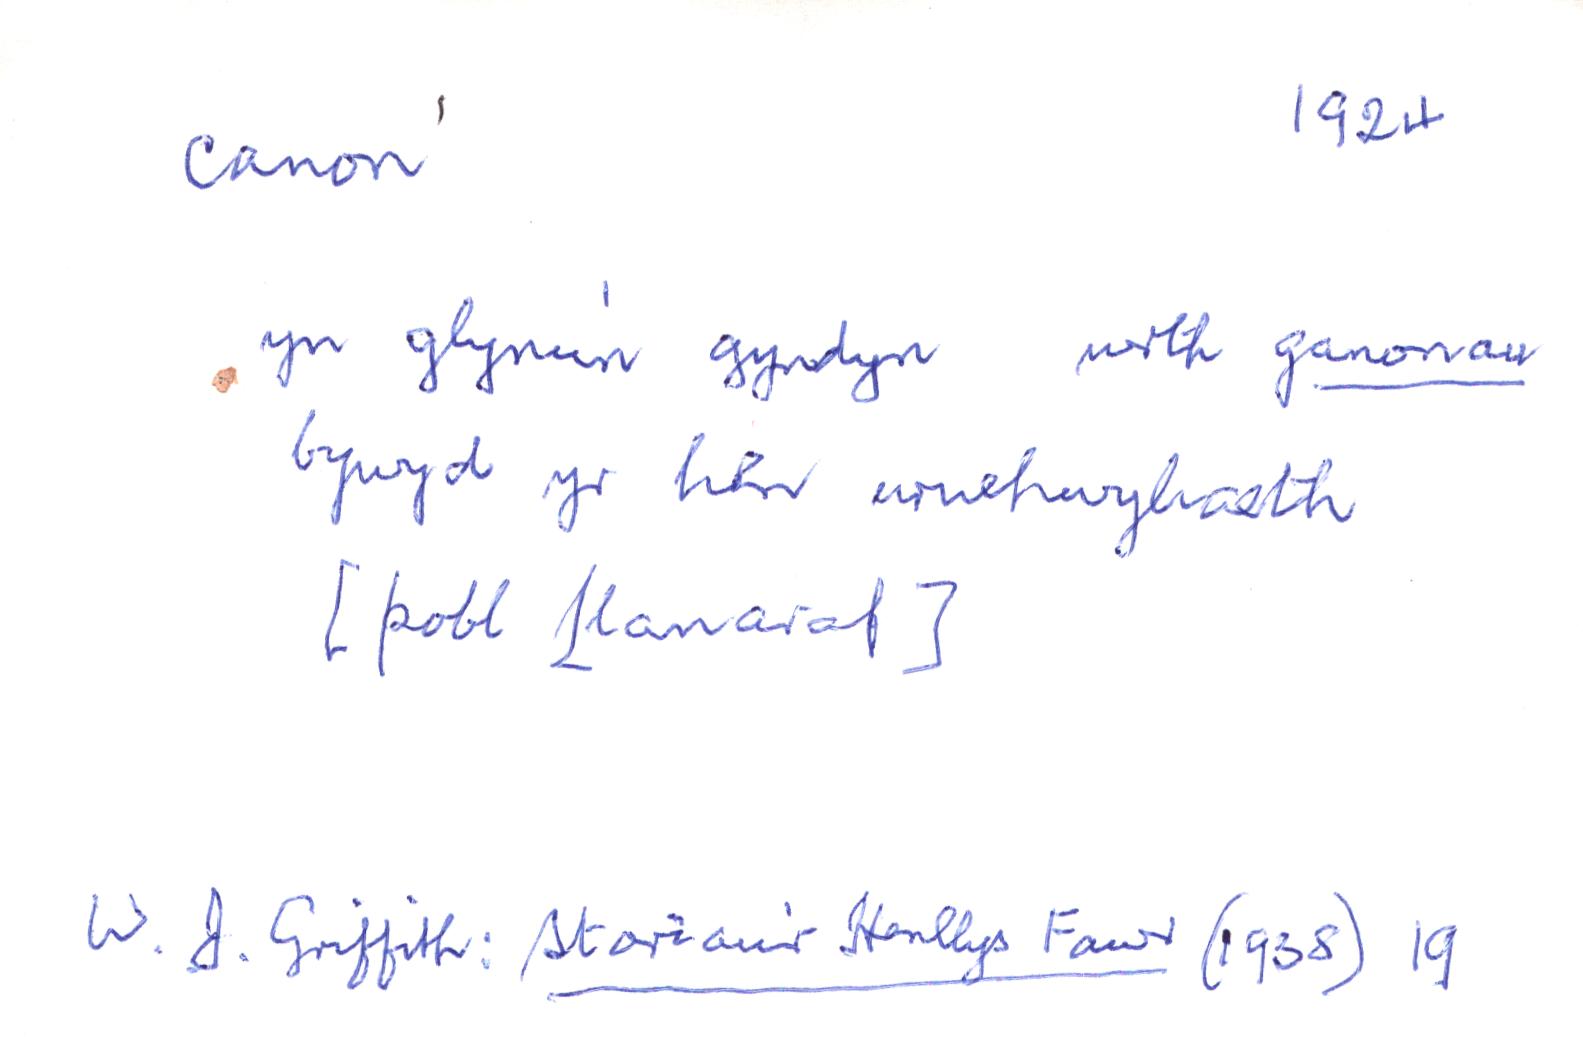 canon¹ 1924
yn glynu'n gyndyn wrth ganonau
bywyd yr hên uruchwyliaeth
[pobl Llanaraf]
W. J. Griffith: Storïau'r Henllys Fawr (1938) 19